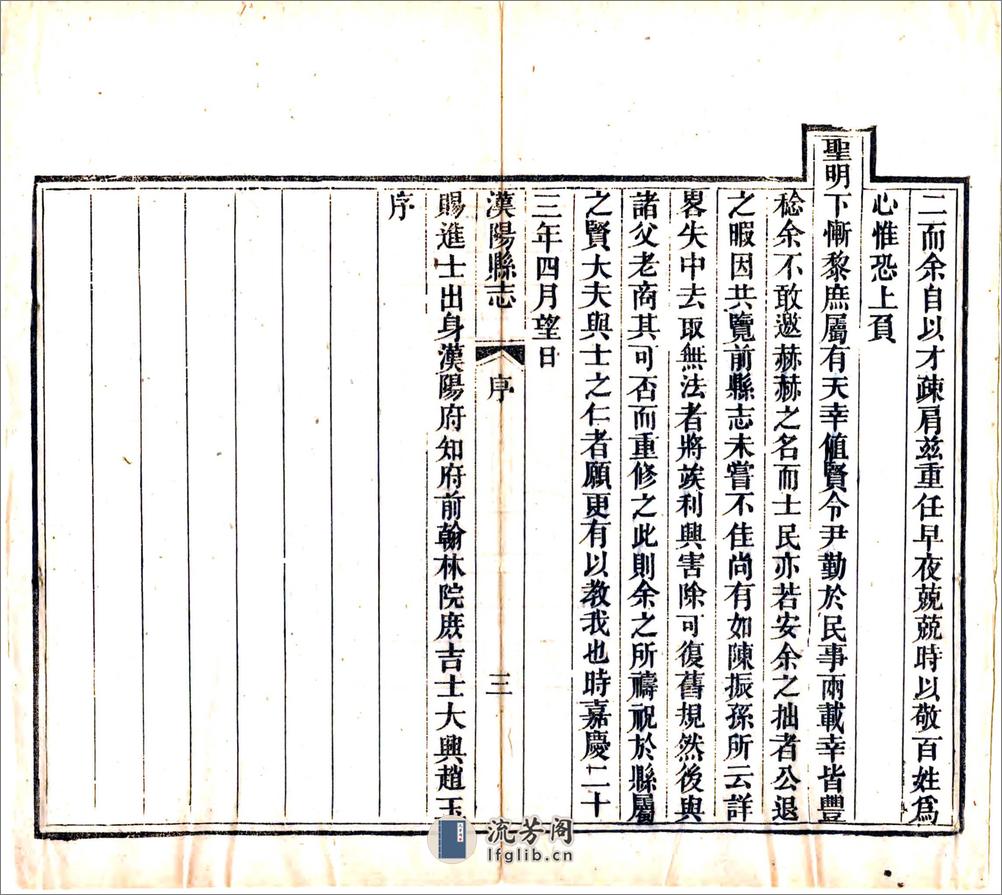 二而余自以才疎肩茲重任早夜兢兢時以敬百姓爲
心惟恐上負
聖明下慚黎庶屬有天幸値賢令尹勤於民事兩載幸皆豐
稔余不敢邀赫赫之名而士民亦若安余之拙者公退
之暇因共覽前縣志未嘗不佳尚有如陳振孫所云詳
畧失中去取無法者將俟利興害除可復舊規然後與
諸父老商其可否而重修之此則余之所禱祝於縣屬
之賢大夫與士之仁者願更有以教我也時嘉慶二十
三年四月望日
漢陽縣志 序 三
賜進士出身漢陽府知府前翰林院庶吉士大興趙玉
序
流芳阁
lfglib.cn